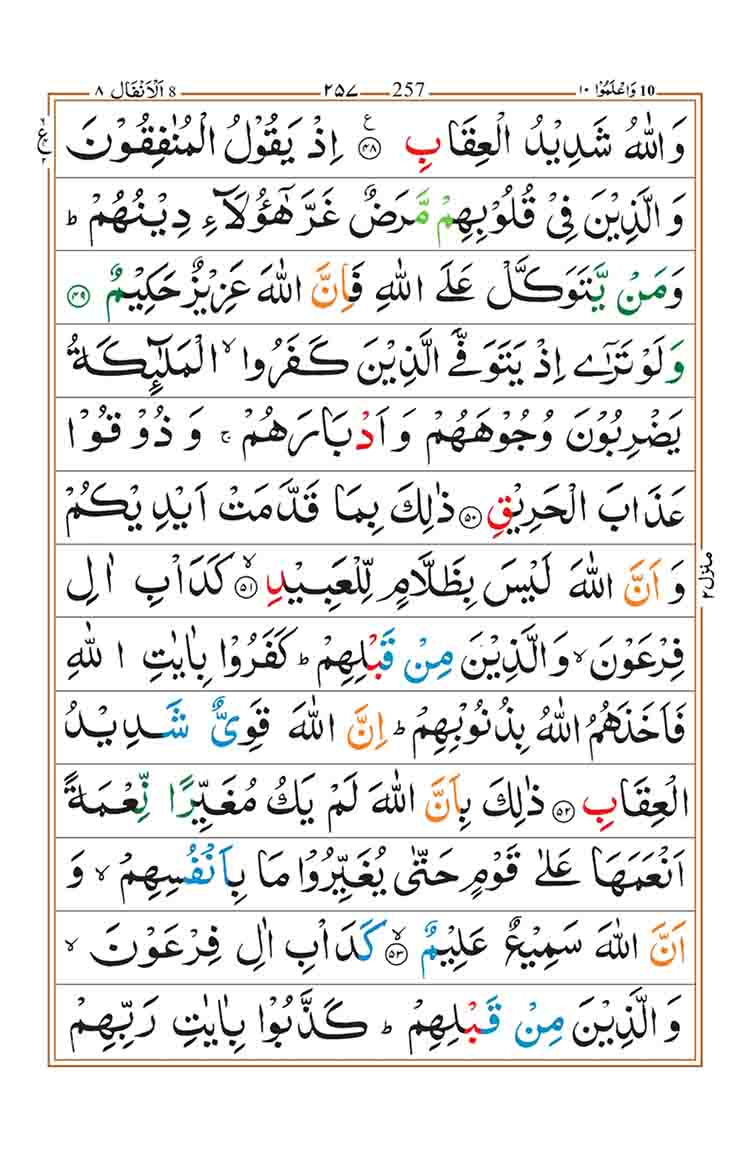 10 وَاعْلَمُوْا ۱۰ — 257 — ۲۵۷ — 8 اَلْاَنْفَال ۸
وَاللّٰهُ شَدِيْدُ الْعِقَابِ ﴿۴۸﴾ ع اِذْ يَقُوْلُ الْمُنٰفِقُوْنَ
وَالَّذِيْنَ فِيْ قُلُوْبِهِمْ مَّرَضٌ غَرَّ هٰٓؤُلَآءِ دِيْنُهُمْ ؕ
وَمَنْ يَّتَوَكَّلْ عَلَى اللّٰهِ فَاِنَّ اللّٰهَ عَزِيْزٌ حَكِيْمٌ ﴿۴۹﴾
وَلَوْ تَرٰٓى اِذْ يَتَوَفَّى الَّذِيْنَ كَفَرُوا ۙ الْمَلٰٓئِكَةُ
يَضْرِبُوْنَ وُجُوْهَهُمْ وَاَدْبَارَهُمْ ۚ وَذُوْقُوْا
عَذَابَ الْحَرِيْقِ ﴿۵۰﴾ ذٰلِكَ بِمَا قَدَّمَتْ اَيْدِيْكُمْ
وَاَنَّ اللّٰهَ لَيْسَ بِظَلَّامٍ لِّلْعَبِيْدِ ۙ﴿۵۱﴾ كَدَاْبِ اٰلِ
فِرْعَوْنَ ۙ وَالَّذِيْنَ مِنْ قَبْلِهِمْ ؕ كَفَرُوْا بِاٰيٰتِ اللّٰهِ
فَاَخَذَهُمُ اللّٰهُ بِذُنُوْبِهِمْ ؕ اِنَّ اللّٰهَ قَوِيٌّ شَدِيْدُ
الْعِقَابِ ﴿۵۲﴾ ذٰلِكَ بِاَنَّ اللّٰهَ لَمْ يَكُ مُغَيِّرًا نِّعْمَةً
اَنْعَمَهَا عَلٰى قَوْمٍ حَتّٰى يُغَيِّرُوْا مَا بِاَنْفُسِهِمْ ۙ وَ
اَنَّ اللّٰهَ سَمِيْعٌ عَلِيْمٌ ۙ﴿۵۳﴾ كَدَاْبِ اٰلِ فِرْعَوْنَ ۙ
وَالَّذِيْنَ مِنْ قَبْلِهِمْ ؕ كَذَّبُوْا بِاٰيٰتِ رَبِّهِمْ
منزل ۲